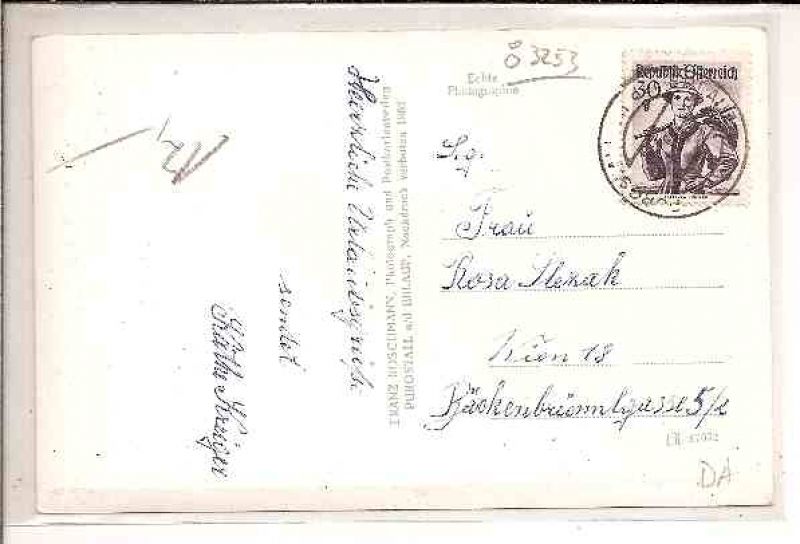 Ö 3253
Echte
Photographie
Republik Österreich
30
Herzliche Urlaubsgrüße
sendet
Käthe Krüger
FRANZ ROSCHMANN, Photograph und Postkartenverlag
PURGSTALL a/d ERLAUF, Nachdruck verboten
S.g.
Frau
Rosa Slezak
Wien 18
Bäckenbrünnlgasse 5/2
DA